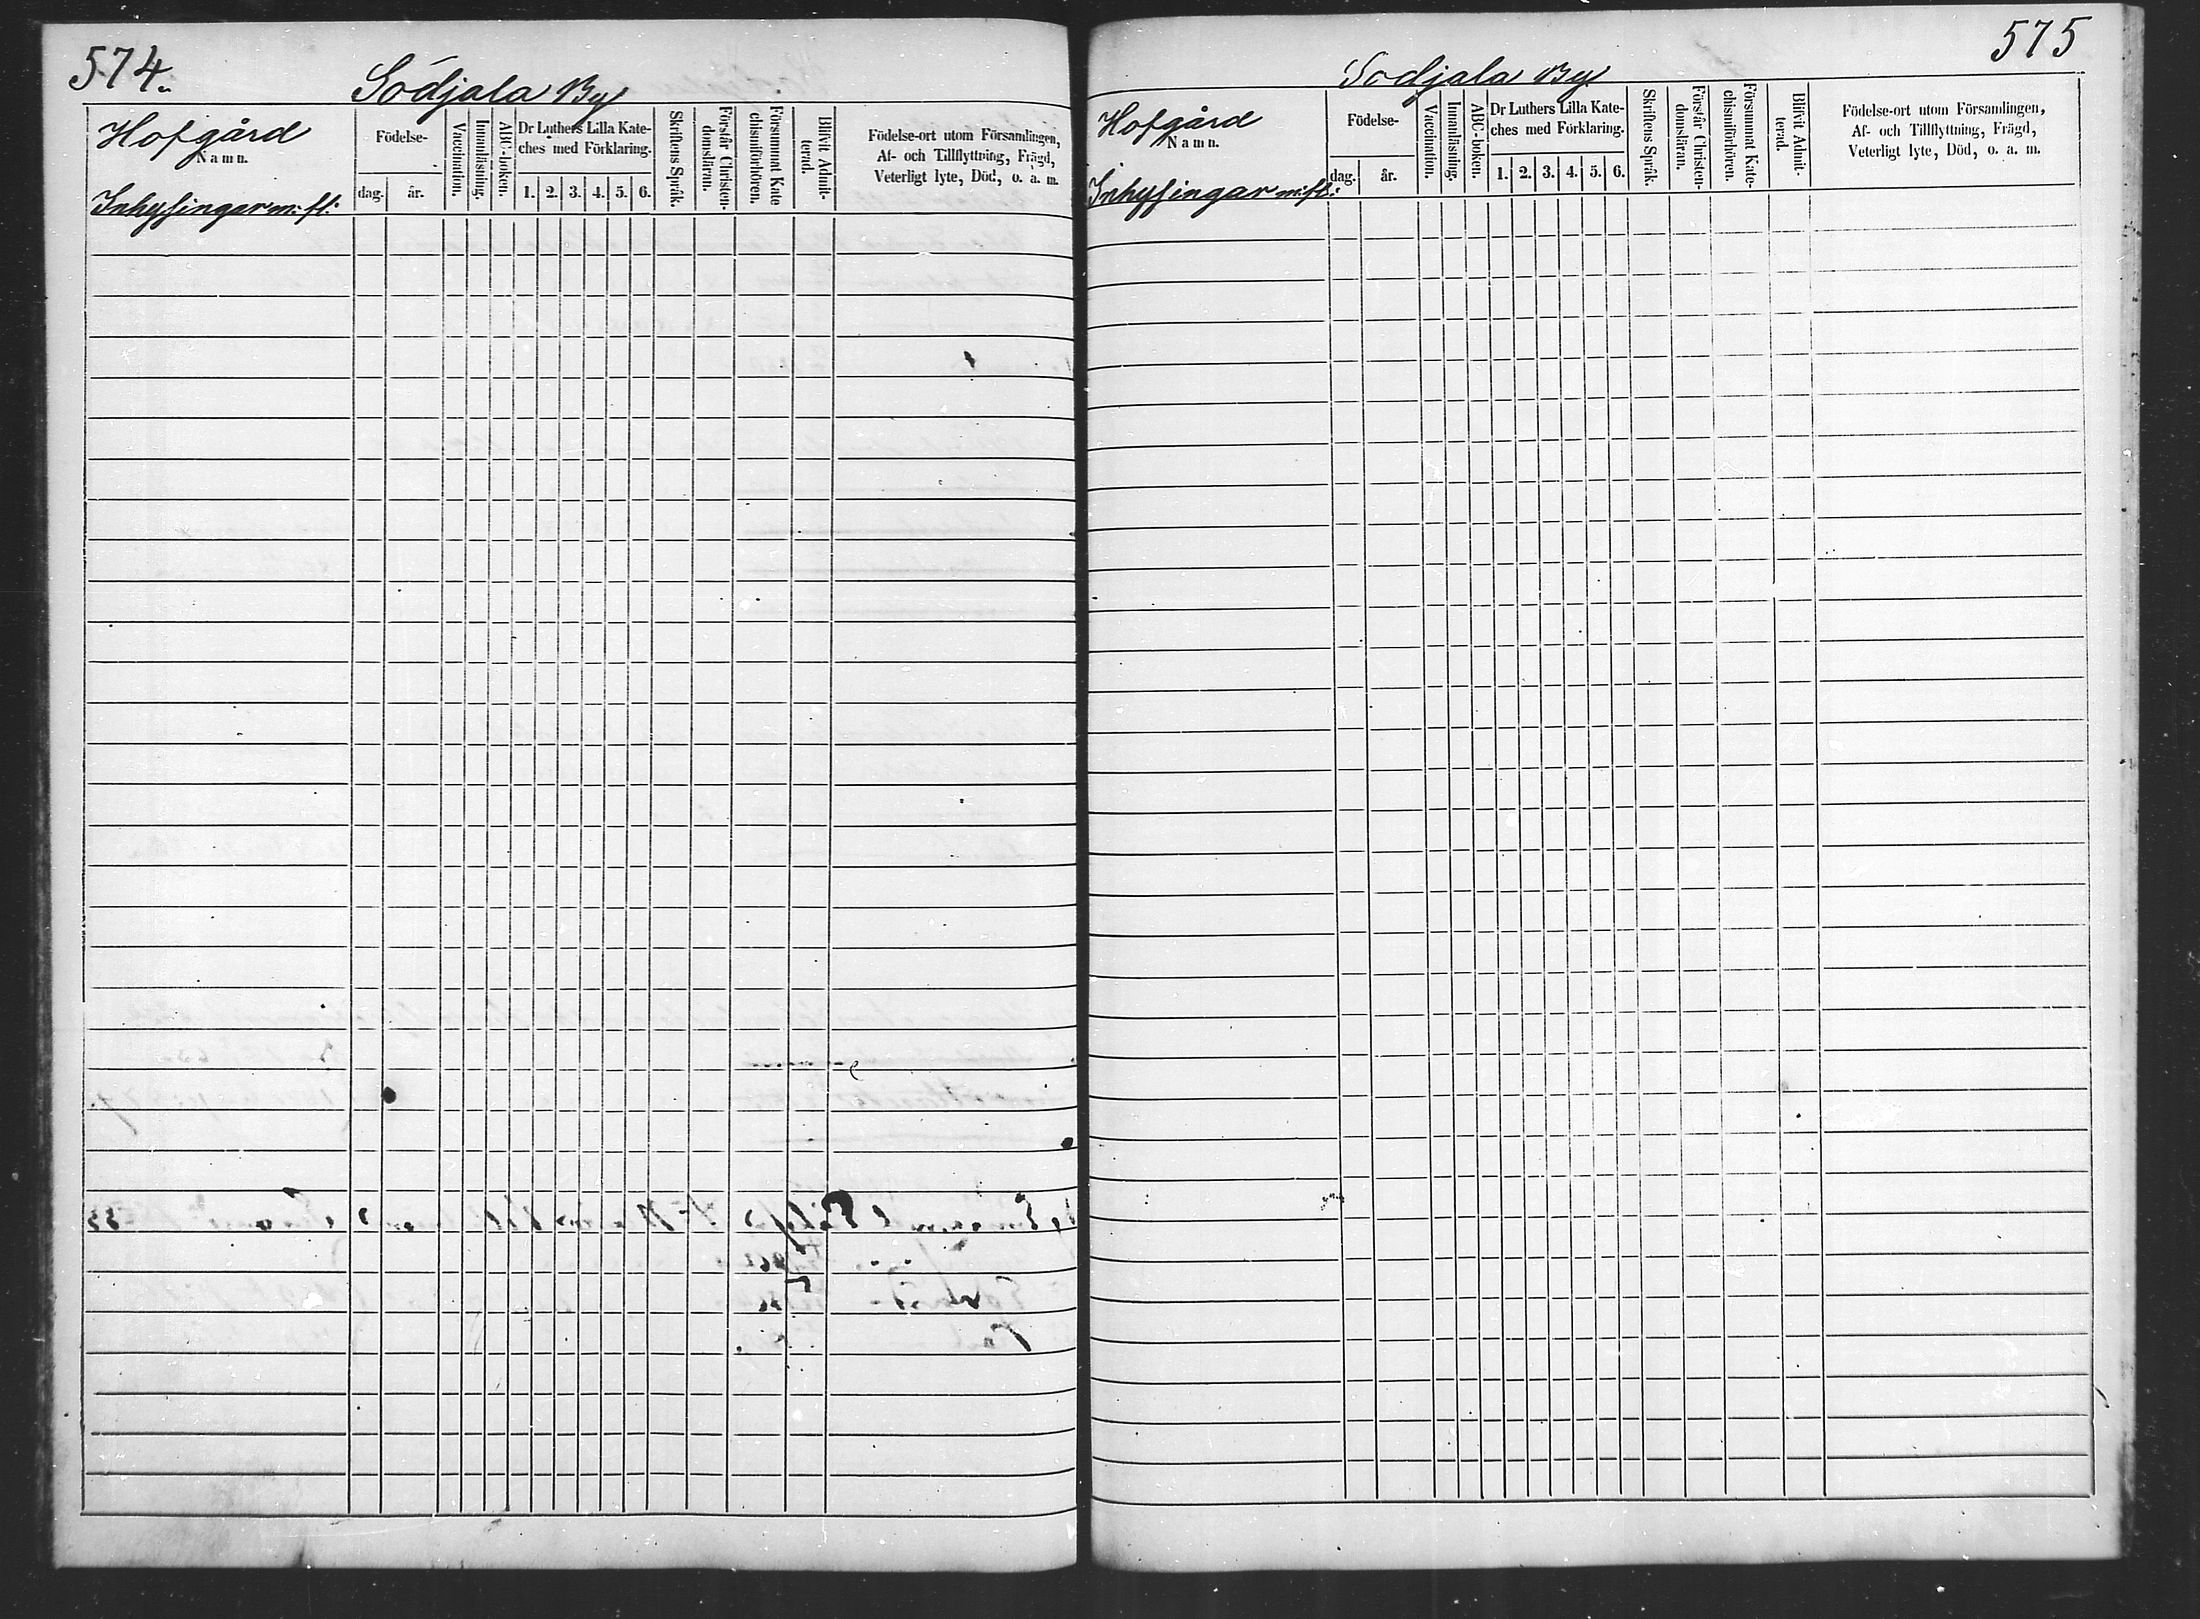 574.
Sodjala By
Hofgård
Namn.
Inhysingar m: fl:
Födelse-
dag.
år.
Vaccination.
Innanläsning.
ABC-boken.
Dr Luthers Lilla Kate-
ches med Förklaring.
1. 2. 3. 4. 5. 6.
Skriftens Språk.
Förstår Christen-
domsläran.
Försummat Kate
chismiförhören.
Blifvit Admit-
terad.
Födelse-ort utom Församlingen,
Af- och Tillflyttning, Frägd,
Veterligt lyte, Död, o. a. m.
575
Sodjala By
Hofgård
Namn.
Inhysingar m: fl:
Födelse-
dag.
år.
Vaccination.
Innanläsning.
ABC-boken.
Dr Luthers Lilla Kate-
ches med Förklaring.
1. 2. 3. 4. 5. 6.
Skriftens Språk.
Förstår Christen-
domsläran.
Försummat Kate-
chismiförhören.
Blifvit Admit-
terad.
Födelse-ort utom Församlingen,
Af- och Tillflyttning, Frägd,
Veterligt lyte, Död, o. a. m.